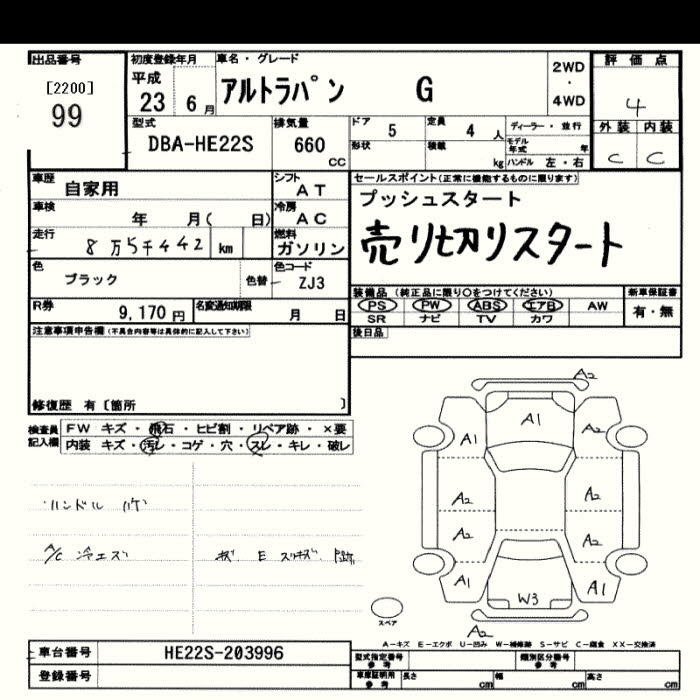 出品番号
[2200]
99
初度登録年月
平成
23 6月
車名・グレード
アルトラパン G
2WD
・
4WD
評価点
4
外装 内装
C C
型式
DBA-HE22S
排気量
660
CC
ドア 5
定員 4 人
形状
積載 kg
ディーラー・並行
モデル年式 年
ハンドル 左・右
車歴
自家用
シフト
AT
車検
年 月( 日)
冷房
AC
走行
8万5千442 km
燃料
ガソリン
色
ブラック
色替
色コード
ZJ3
R券
9,170円
名変通知期限
月 日
セールスポイント(正常に機能するものに限ります)
プッシュスタート
売り切りスタート
装備品(純正品に限り○をつけてください)
PS PW ABS エアB AW
SR ナビ TV カワ
新車保証書
有・無
後日品
注意事項申告欄(不具合内容等は具体的に記入して下さい)
修復歴 有〔箇所 〕
検査員
記入欄
FW キズ・飛石・ヒビ割・リペア跡・×要
内装 キズ・汚レ・コゲ・穴・スレ・キレ・破レ
ハンドル ハゲ
A/C 冷エズ
A2
A1
A1
A2
A2
A2
A2
A2
A1
W3
A1
A2
スペア
A-キズ E-エクボ U-凹み W-補修跡 S-サビ C-腐食 XX-交換済
車台番号
HE22S-203996
登録番号
型式指定番号
参考
類別区分番号
参考
車庫証明用
参考
長さ cm
幅 cm
高さ cm